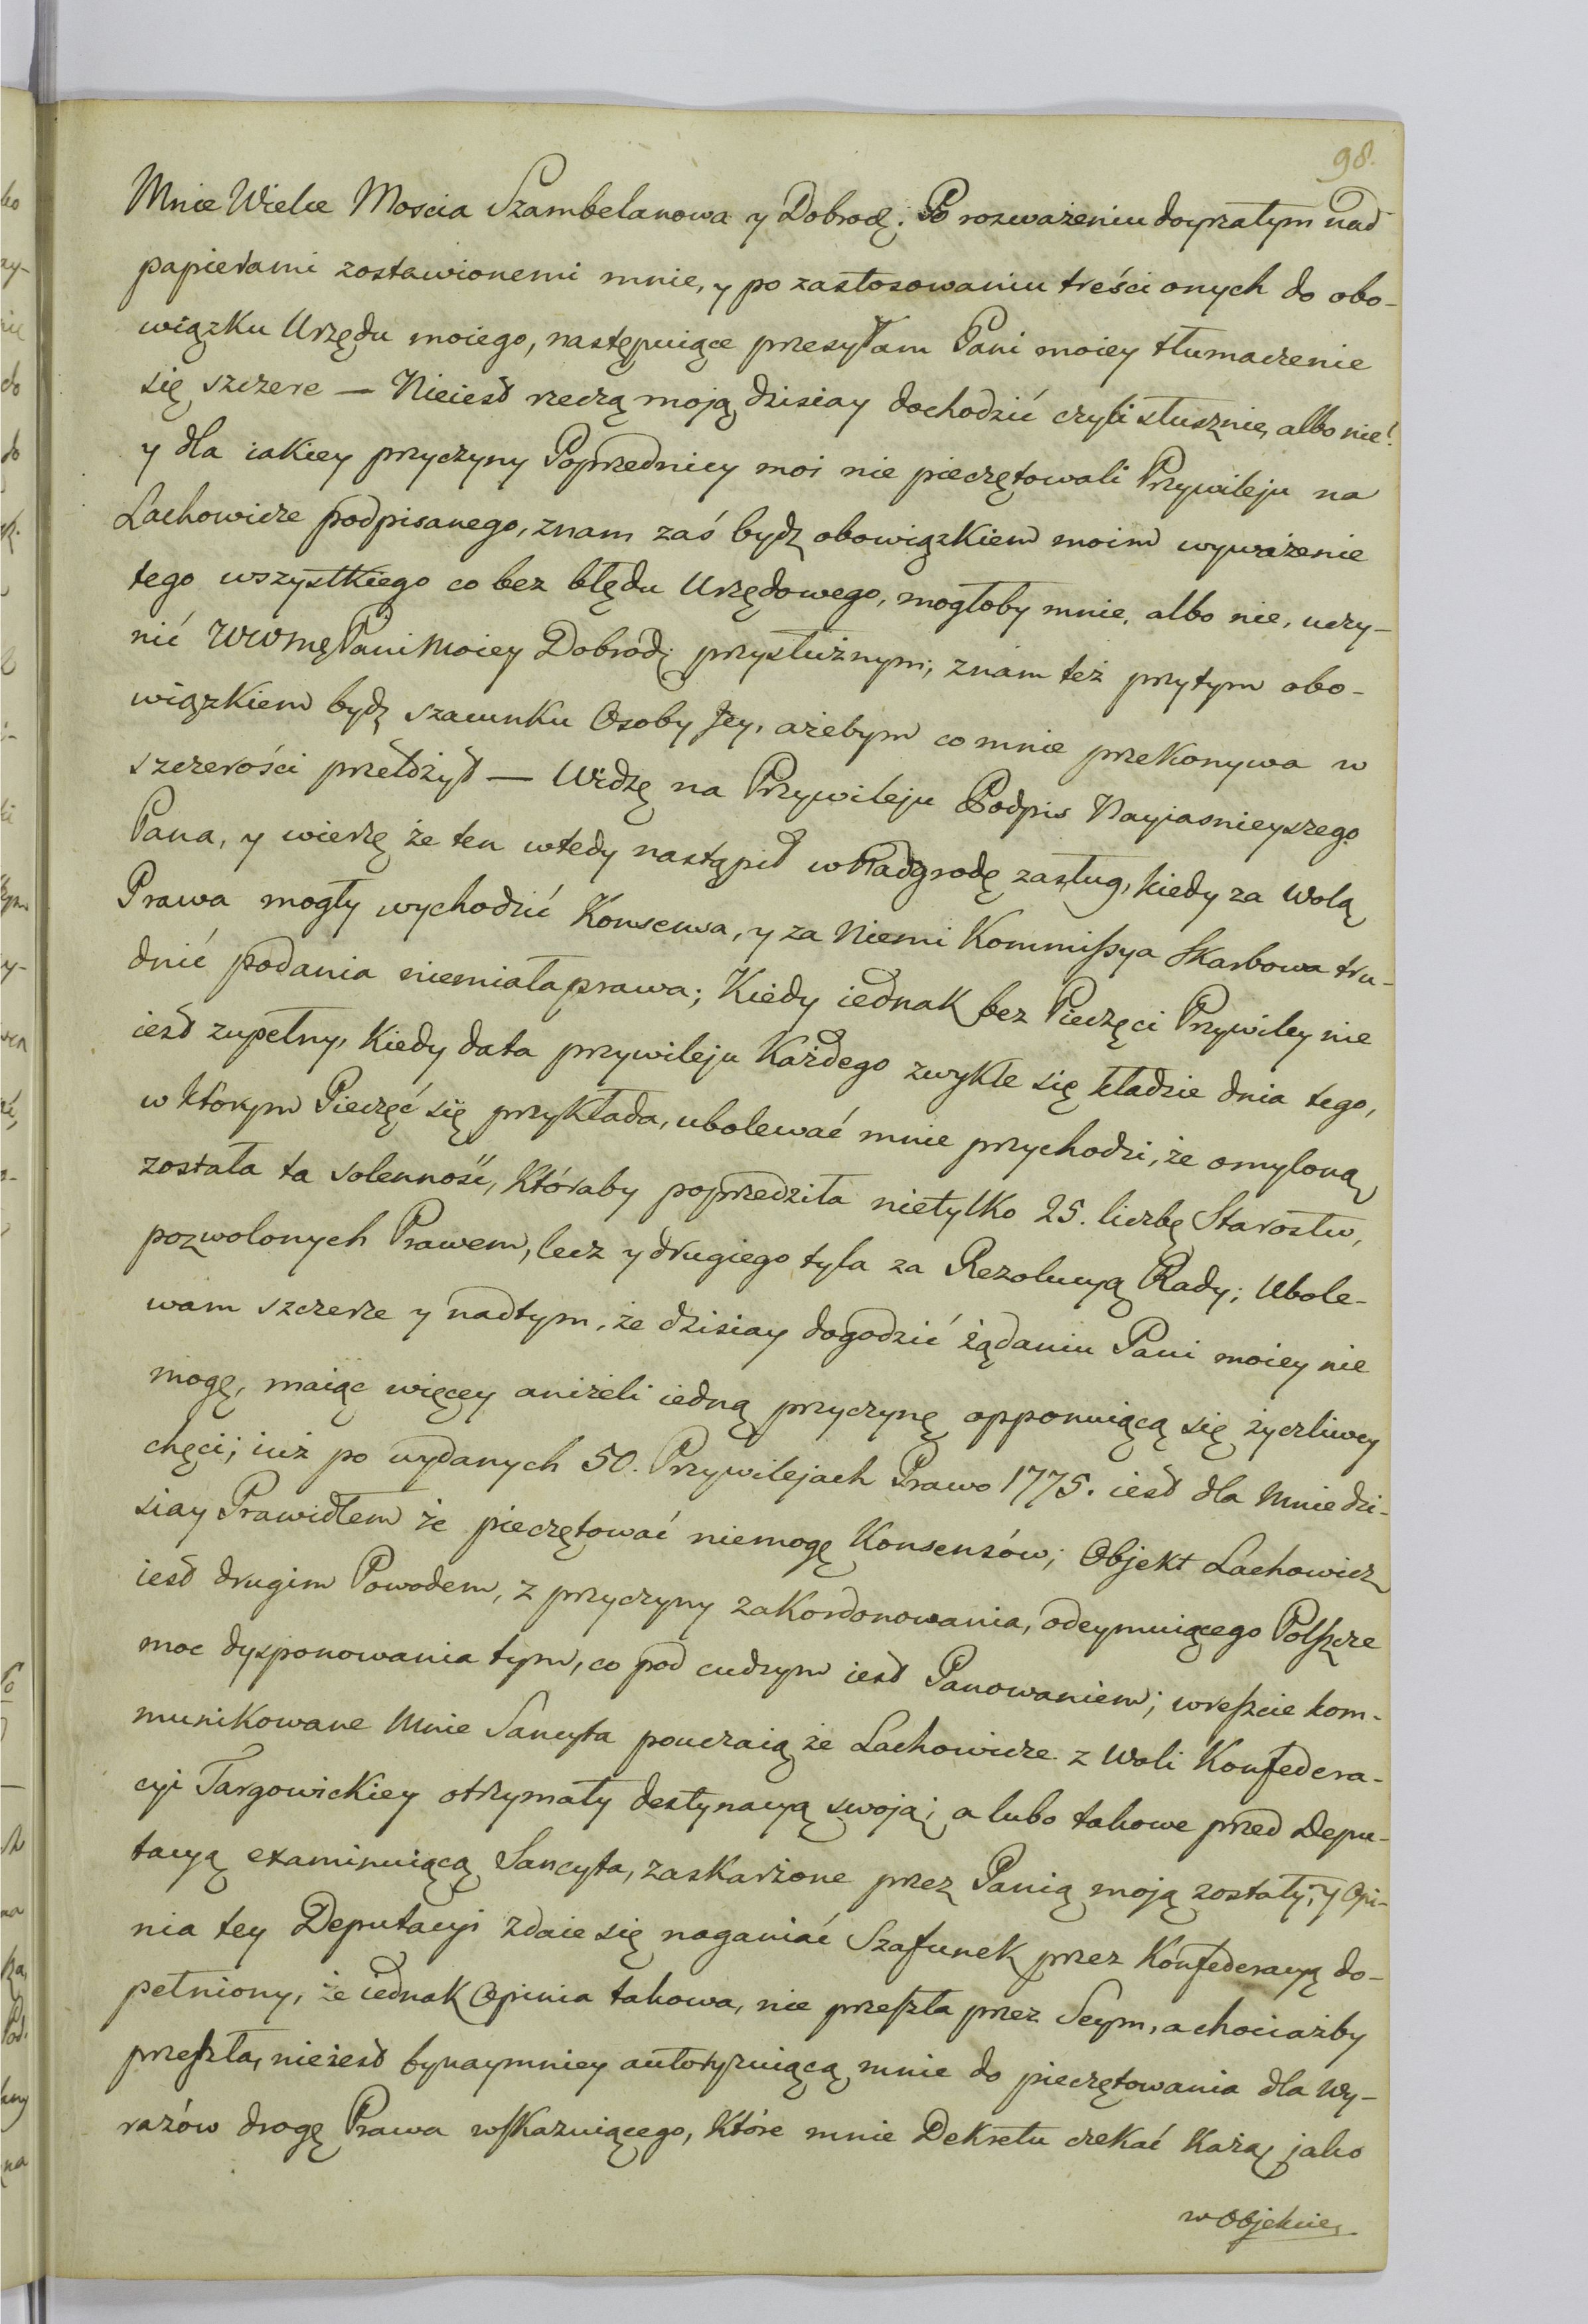 98.
Mnie Wielce Moscia Szambelanowa y Dobrodź: Po rozważeniu doyrzałym nad
papierami zostawionemi mnie, y po zastosowaniu treści onych do obo-
wiązku Urzędu moiego, następuiące przesyłam Pani moiey tłumaczenie
się szczere — Nieiest rzeczą moją dzisiay dochodzić czyli słusznie, albo nie?
y dla iakiey przyczyny Poprzednicy moi nie pieczętowali Przywileju na
Lachowicze podpisanego, znam zaś bydz obowiązkiem moim wyważenie
tego wszystkiego co bez błędu Urzędowego, mogłoby mnie, albo nie, uczy-
nić WWMę Pani Moiey Dobrodź: przysłużnym; znam też przytym obo-
wiązkiem bydz szacunku Osoby Jey, ażebym co mnie przekonywa w
szczerości przełożył — Widzę na Przywileju Podpis Nayiasnieyszego
Pana, y wierzę że ten wtedy nastąpił w Nadgrodę zasług, kiedy za wolą
Prawa mogły wychodzić Konsensa, y za Niemi Kommissya Skarbowa tru-
dnić podania niemiała prawa; Kiedy iednak bez Pieczęci Przywiley nie
iest zupełny, Kiedy data przywileju Każdego zwykle się kładzie dnia tego,
w którym Pieczęć się przykłada, ubolewać mnie przychodzi, że omyloną
została ta solenność, któraby poprzedziła nietylko 25. liczbę Starostw,
pozwolonych Prawem, lecz y drugiego tyla za Rezolucyą Rady; Ubole-
wam szczerze y nadtym, że dzisiay dogodzić żądaniu Pani moiey nie
mogę, maiąc więcey aniżeli iedną przyczynę opponuiącą się życzliwey
chęci; iuż po wydanych 50. Przywilejach Prawo 1775. iest dla Mnie dzi-
siay Prawidłem że pieczętować niemogę Konsensów; Objekt Lachowicz
iest drugim Powodem, z przyczyny zakordonowania, odeymuiącego Polszcze
moc dysponowania tym, co pod cudzym iest Panowaniem; wreszcie kom-
munikowane Mnie Sancyta pouczaią że Lachowicze z Woli Konfedera-
cyi Targowickiey otrzymały destynacyą swoją; a lubo takowe przed Depu-
tacyą examinuiącą Sancyta, zaskarżone przez Panią moją zostały; y Opi-
nia tey Deputacyi zdaie się naganiać Szafunek przez Konfederacyą do-
pełniony, że iednak Opinia takowa, nie przeszła przez Seym, a chociażby
przeszła, nieiest bynaymniey autoryzuiącą mnie do pieczętowania dla Wy-
razów drogę Prawa wskazuiącego, które mnie Dekretu czekać każą jako
w Objekcie